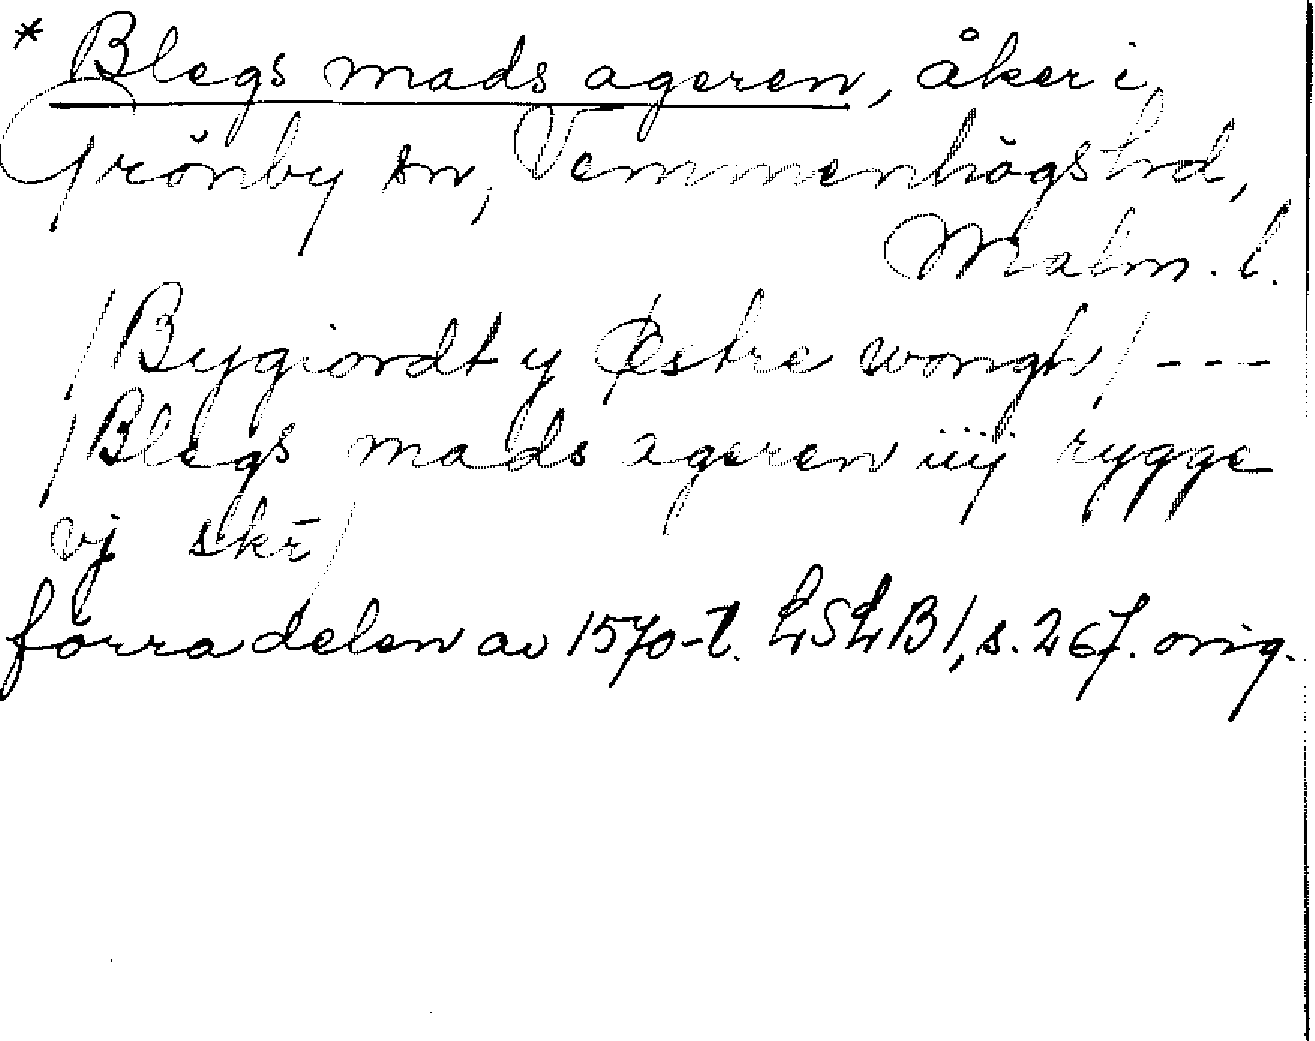 * Blegs mads ageren, åker i
Grönby sn, Vemmenhögs hd,
Malm. l.
/Bygiordt y Østre wongh/ ---
/Blegs mads ageren iiij rygge
vj skr̄/
förra delen av 1570-t. LSLB 1, s. 267. orig.